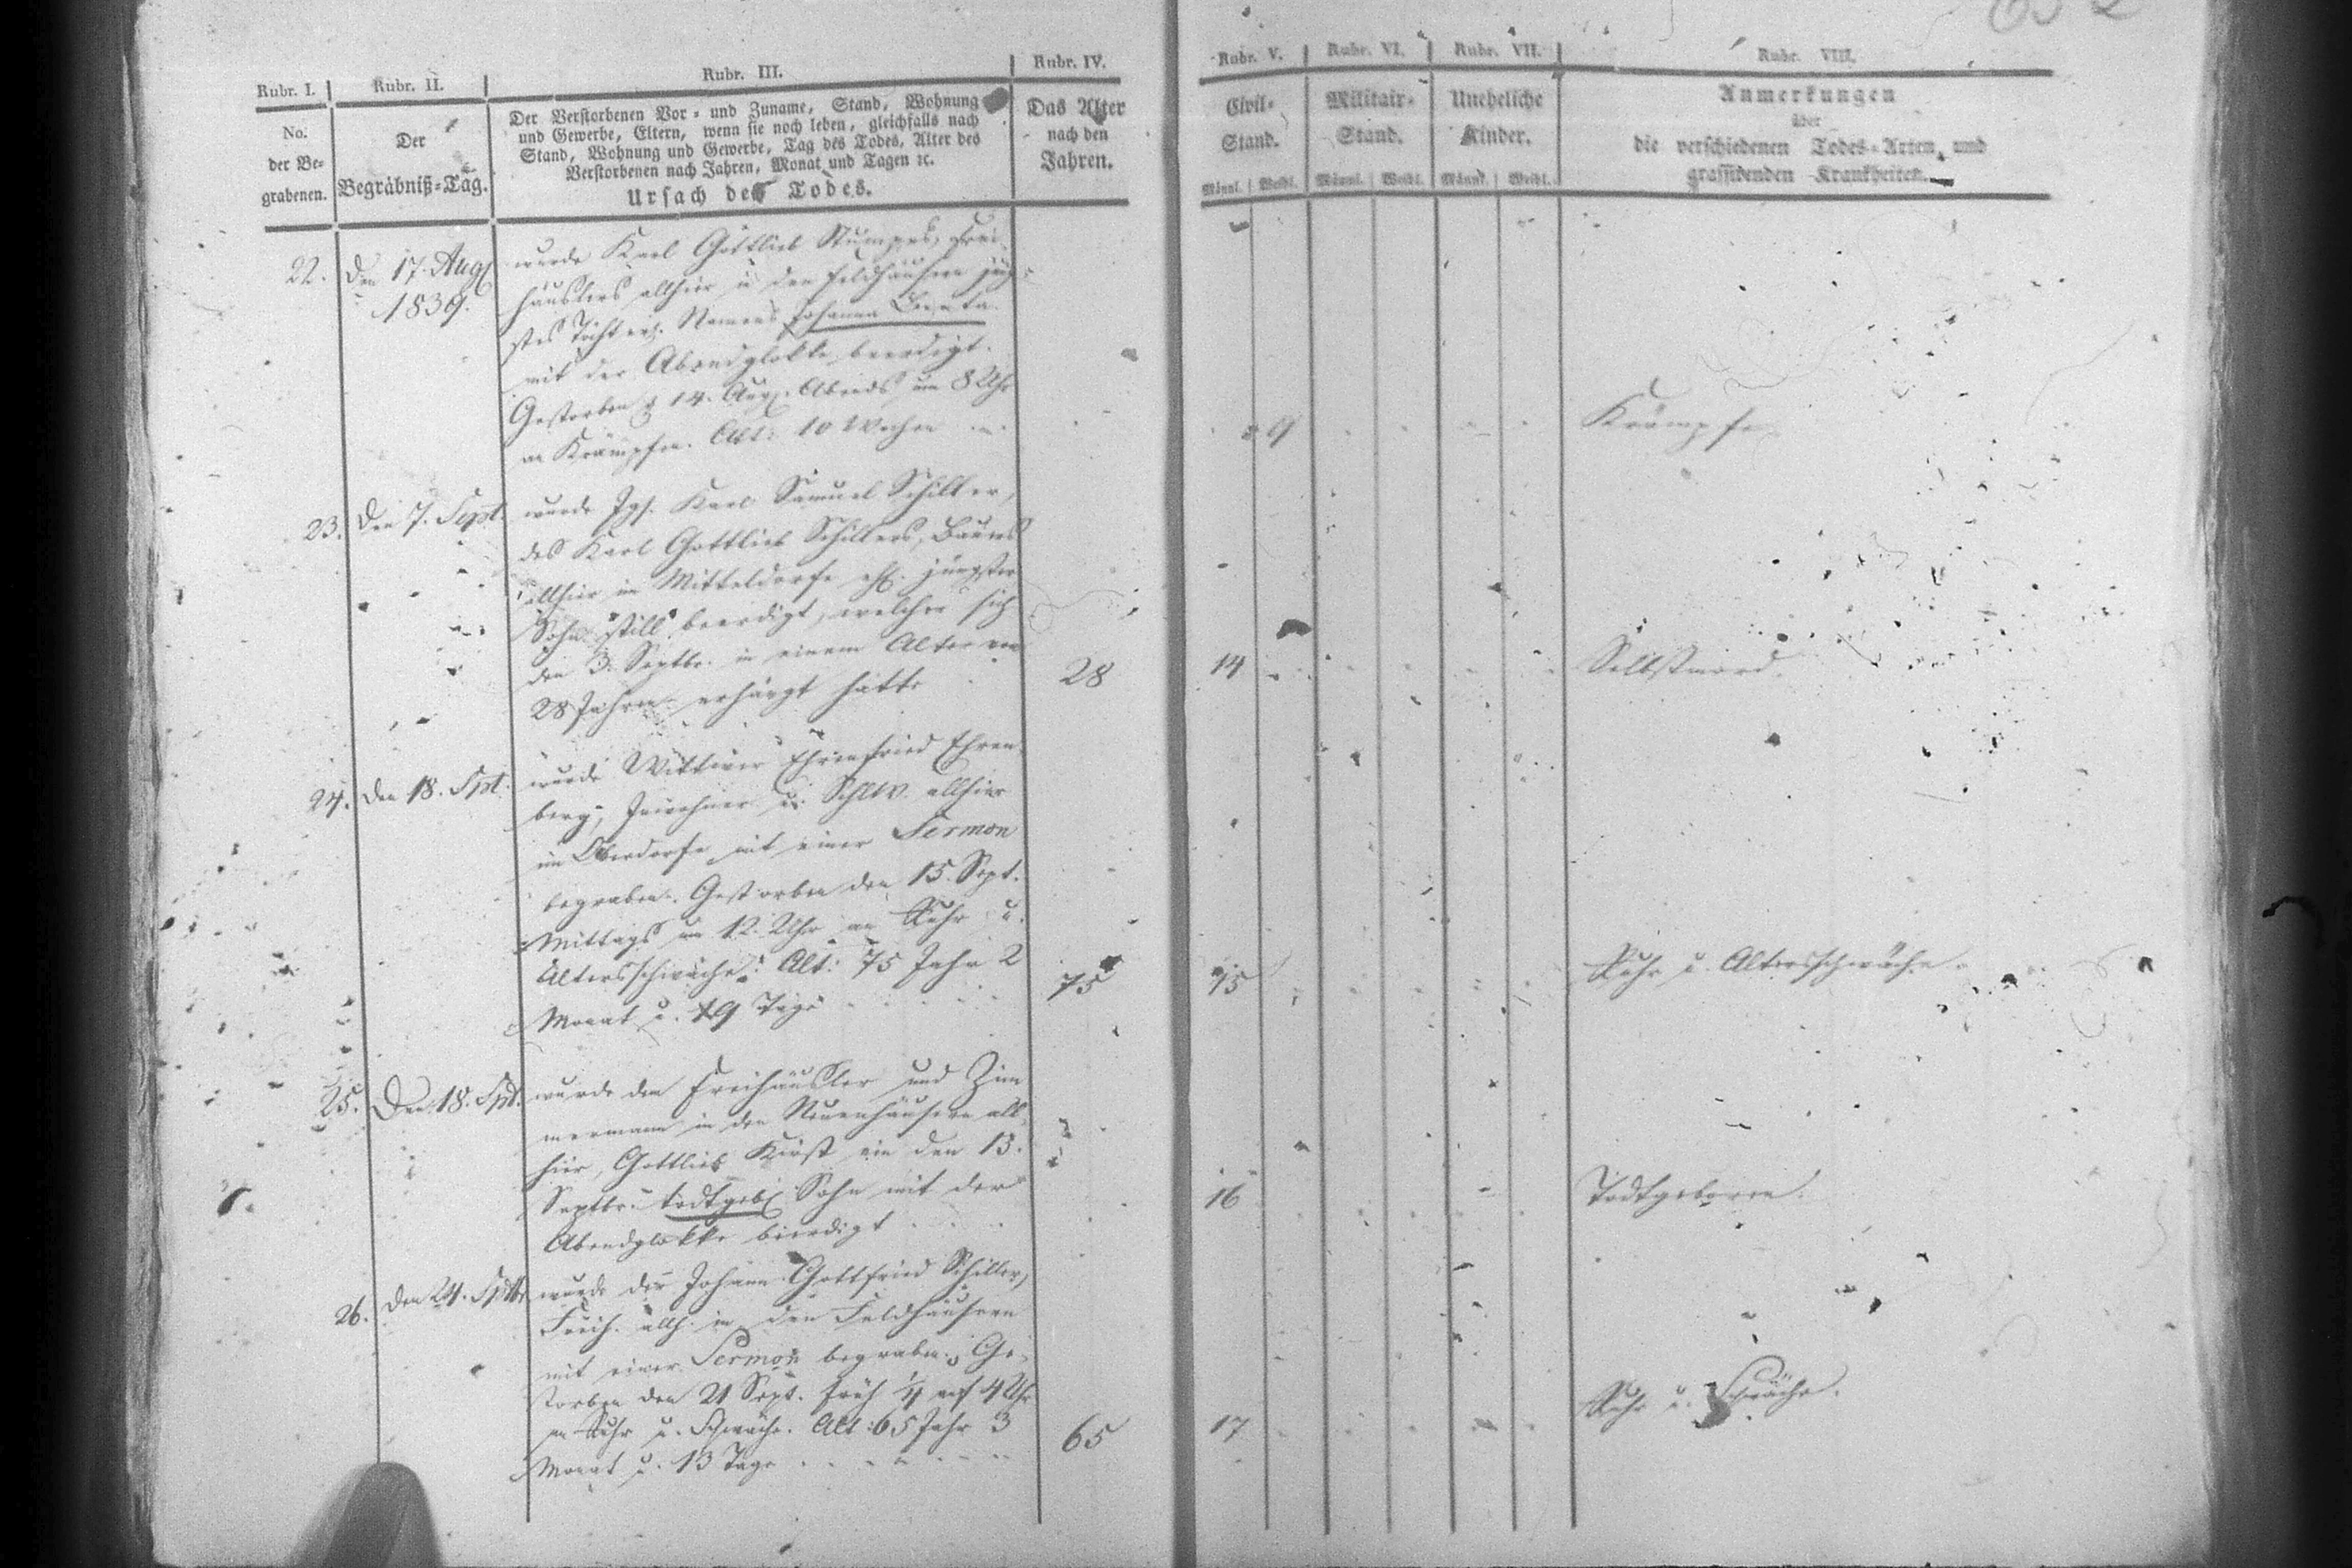 Rubr. I.
No.
der Be-
grabenen.
Rubr. II.
Der
Begräbniß-Tag.
Rubr. III.
Der Verstorbenen Vor- und Zuname, Stand, Wohnung
und Gewerbe, Eltern, wenn sie noch leben, gleichfalls nach
Stand, Wohnung und Gewerbe, Tag des Todes, Alter des
Verstorbenen nach Jahren, Monat und Tagen ꝛc.
Ursach des Todes.
Rubr. IV.
Das Alter
nach den
Jahren.
Rubr. V.
Civil-
Stand.
Männl. Weibl.
Rubr. VI.
Militair-
Stand.
Männl. Weibl.
Rubr. VII.
Uneheliche
Kinder.
Männl. Weibl.
Rubr. VIII.
Anmerkungen
über
die verschiedenen Todes-Arten, und
grassirenden Krankheiten.
22.
Den 17. Aug.
1839.
wurde Karl Gottlieb Frei-
häuslers allhier in den Feldhäusern jüng-
stes Töchterl. Namens Johanna Beata
mit der Abendglokke beerdigt.
Gestorben d 14. Aug. Abends um 8 Uhr
an Krämpfen. Alt: 10 Wochen
9
Krämpfe
23.
Den 7. Sept.
wurde Jgs. Karl Samuel Schiller,
des Karl Gottlieb Schillers, Bauers
allhier im Mitteldorfe ehl. jüngster
Sohn still beerdigt, welcher sich
den 3. Septbr. in einem Alter von
28 Jahren erhängt hatte
28
14
Selbstmord.
24.
Den 18. Spt.
wurde Wittwer Ehrenfried Ehren-
berg, Inwohner u. allhier
im Oberdorfe mit einer Sermon
begraben. Gestorben den 15. Sept.
Mittags um 12 Uhr an Ruhr u.
Altersschwäche. Alt: 75 Jahr 2
Monat u. 19 Tage
75
15
Ruhr u. Altersschwäche.
25.
Den 18. Spt.
wurde dem Freihäusler und Zim
mermann in den Neuenhäusern all
hier, Gottlieb Kirst ein den 13.
Septbr. todtgeb. Sohn mit der
Abendglokke beerdigt
16
Todtgeboren.
26.
Den 24. Sptbr
wurde der Johann Gottfried Schiller,
Freih. allh. in den Feldhäusern
mit einer Sermon begraben. Ge-
storben den 21 Sept. früh 1/4 auf 4 Uhr
an Ruhr u. Schwäche. Alt: 65 Jahr 3
Monat u. 13 Tage
65
17
Ruhr u. Schwäche.